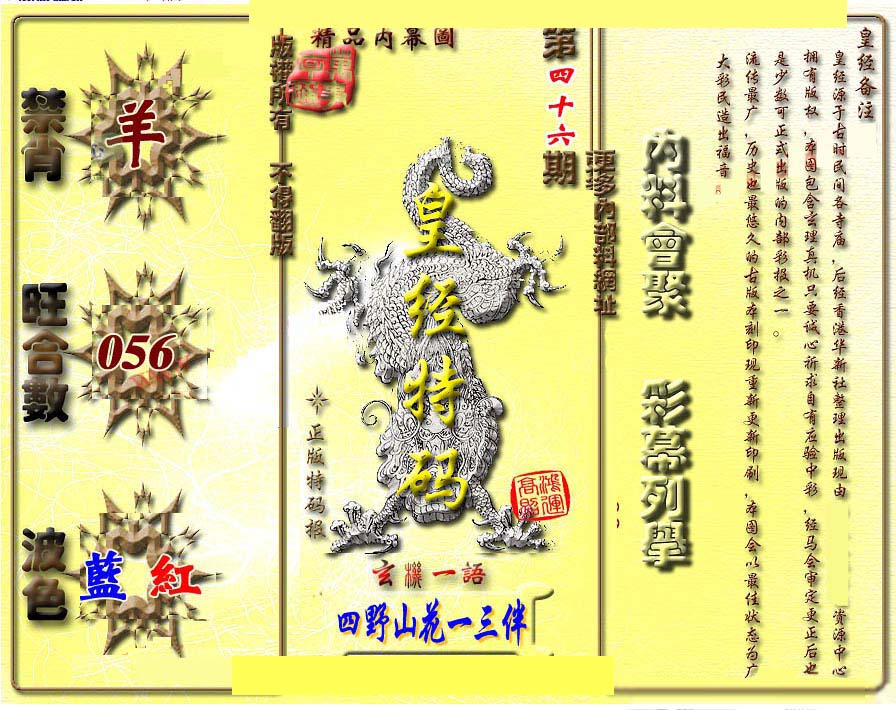 精品内幕圖
版權所有 不得翻版
第四十六期
更多內部料網址
禁肖
羊
旺合數
056
波色
藍 紅
皇经特码
正版特码报
鴻運高照
玄機一語
四野山花一三伴
內料會聚
彩幕列學
皇经备注
皇经源于古时民间各寺庙，后经香港华新社整理出版现由 资源中心
拥有版权，本图包含玄理真机只要诚心祈求自有应验中彩，经马会审定更正后也
是少数可正式出版的内部彩报之一。
流传最广，历史也最悠久的古版本刻印现重新更新印刷，本图会以最佳状态为广
大彩民造出福音